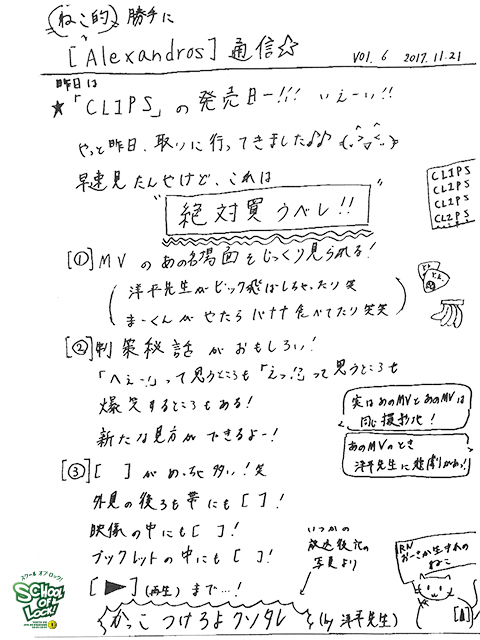 (ねこ的) 勝手に
[Alexandros] 通信☆
VOl. 6 2017.11.21
昨日は
★「CLIPS」の発売日ー!!! いぇーい!!
やっと昨日、取りに行ってきました♪♪
早速見たんやけど、これは
"絶対買うべし!!"
CLIPS
CLIPS
CLIPS
CLIPS
[①] MVのあの名場面をじっくり見られる!
(洋平先生がピック飛ばしちゃったり笑
まーくんがやたらバナナ食べてたり笑笑)
[②] 制策秘話がおもしろい!
「へぇー!」って思うところも「えっ!?」って思うところも
爆笑するところもある!
新たな見方ができるよー!
実はあのMVとあのMVは
同じ撮影地!
あのMVのとき
洋平先生に悲劇がぁっ!
[③] [ ] がめっちゃ多い!笑
外見の後ろも帯にも [ ]!
映像の中にも [ ]!
ブックレットの中にも [ ]!
[▶] (再生) まで…!
いつかの
放送後記の
写真より
かっこつけろよクソッタレ (by 洋平先生)
RN
おーさか生まれの
ねこ
スクール オブ ロック!
SCHOOL OF LOCK!